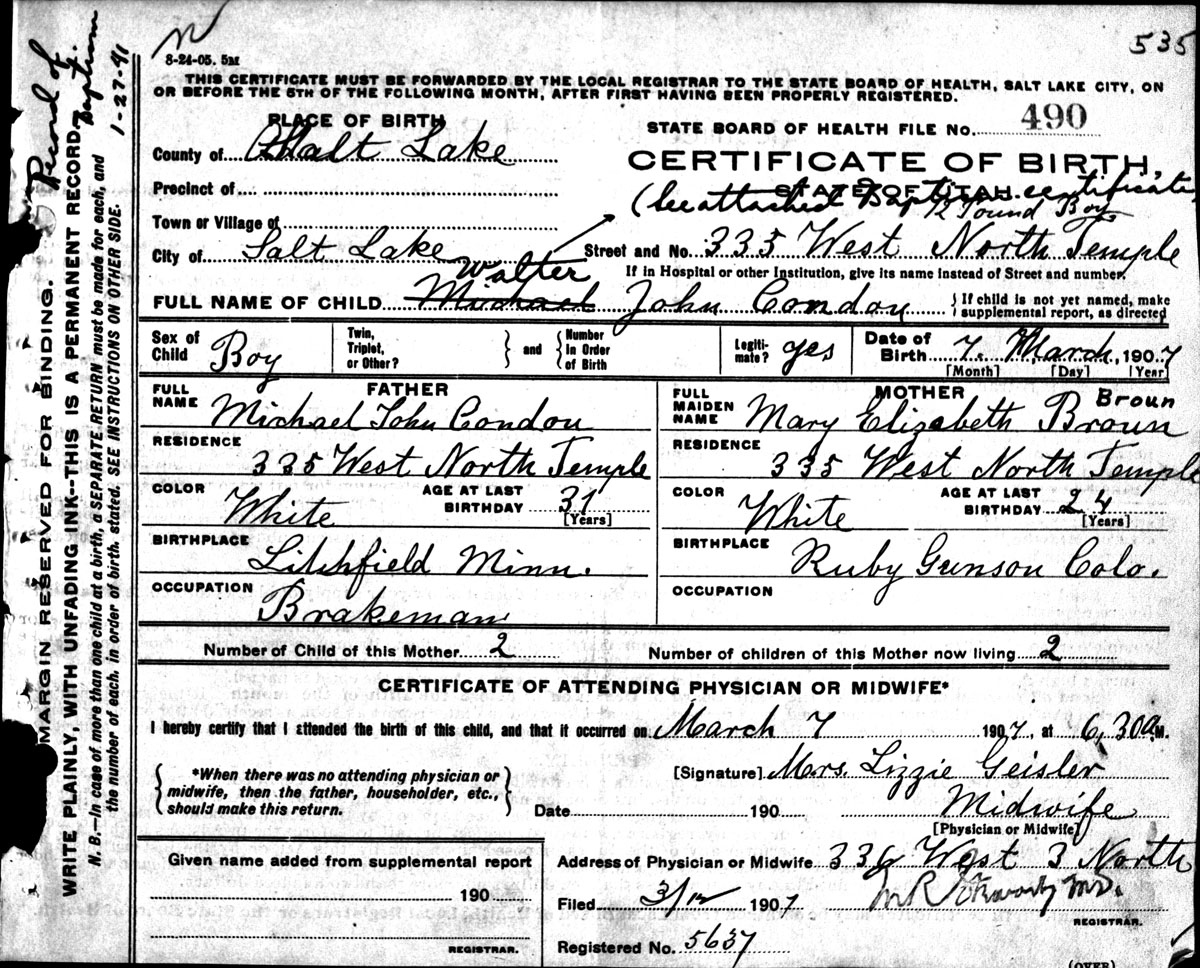 535
8-24-05. 5M
THIS CERTIFICATE MUST BE FORWARDED BY THE LOCAL REGISTRAR TO THE STATE BOARD OF HEALTH, SALT LAKE CITY, ON
OR BEFORE THE 5TH OF THE FOLLOWING MONTH, AFTER FIRST HAVING BEEN PROPERLY REGISTERED.
PLACE OF BIRTH
STATE BOARD OF HEALTH FILE No. 490
County of Salt Lake
CERTIFICATE OF BIRTH,
STATE OF UTAH.
Precinct of
(see attached Baptism certificate
12 Pound Boy
Town or Village of
City of Salt Lake
Street and No. 335 West North Temple
If in Hospital or other Institution, give its name instead of Street and number.
Walter
FULL NAME OF CHILD Michael John Condon
{If child is not yet named, make
supplemental report, as directed
Sex of Child Boy
Twin, Triplet, or Other? } and { Number in Order of Birth
Legiti- mate? yes
Date of Birth 7. March, 1907
[Month] [Day] [Year]
FATHER
FULL NAME Michael John Condon
RESIDENCE
335 West North Temple
COLOR White
AGE AT LAST BIRTHDAY 31
[Years]
BIRTHPLACE
Litchfield Minn.
OCCUPATION
Brakeman
MOTHER
Broun
FULL MAIDEN NAME Mary Elizabeth Broun
RESIDENCE
335 West North Temple
COLOR White
AGE AT LAST BIRTHDAY 24
[Years]
BIRTHPLACE
Ruby Gunson Colo.
OCCUPATION
Number of Child of this Mother 2
Number of children of this Mother now living 2
CERTIFICATE OF ATTENDING PHYSICIAN OR MIDWIFE*
I hereby certify that I attended the birth of this child, and that it occurred on March 7 1907, at 6,30 a M.
{*When there was no attending physician or
midwife, then the father, householder, etc.,
should make this return.}
[Signature] Mrs. Lizzie Geisler
Date 190 Midwife
[Physician or Midwife]
Given name added from supplemental report
190
REGISTRAR.
Address of Physician or Midwife 336 West 3 North
Filed 3/12 1907
REGISTRAR.
Registered No. 5637
(OVER)
Record of
Baptism
1-27-41
MARGIN RESERVED FOR BINDING.
WRITE PLAINLY, WITH UNFADING INK--THIS IS A PERMANENT RECORD.
N. B.—In case of more than one child at a birth, a SEPARATE RETURN must be made for each, and
the number of each, in order of birth, stated. SEE INSTRUCTIONS ON OTHER SIDE.